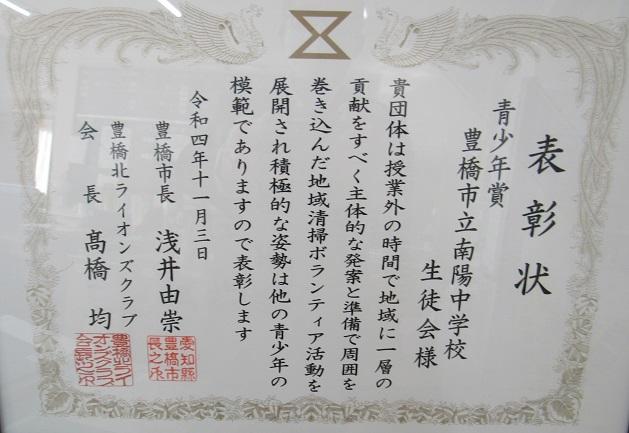 表彰状
青少年賞
豊橋市立南陽中学校
生徒会様
貴団体は授業外の時間で地域に一層の
貢献をすべく主体的な発案と準備で周囲を
巻き込んだ地域清掃ボランティア活動を
展開され積極的な姿勢は他の青少年の
模範でありますので表彰します
令和四年十一月三日
豊橋市長 浅井由崇
愛知縣豊橋市長之印
豊橋北ライオンズクラブ
会長 髙橋 均